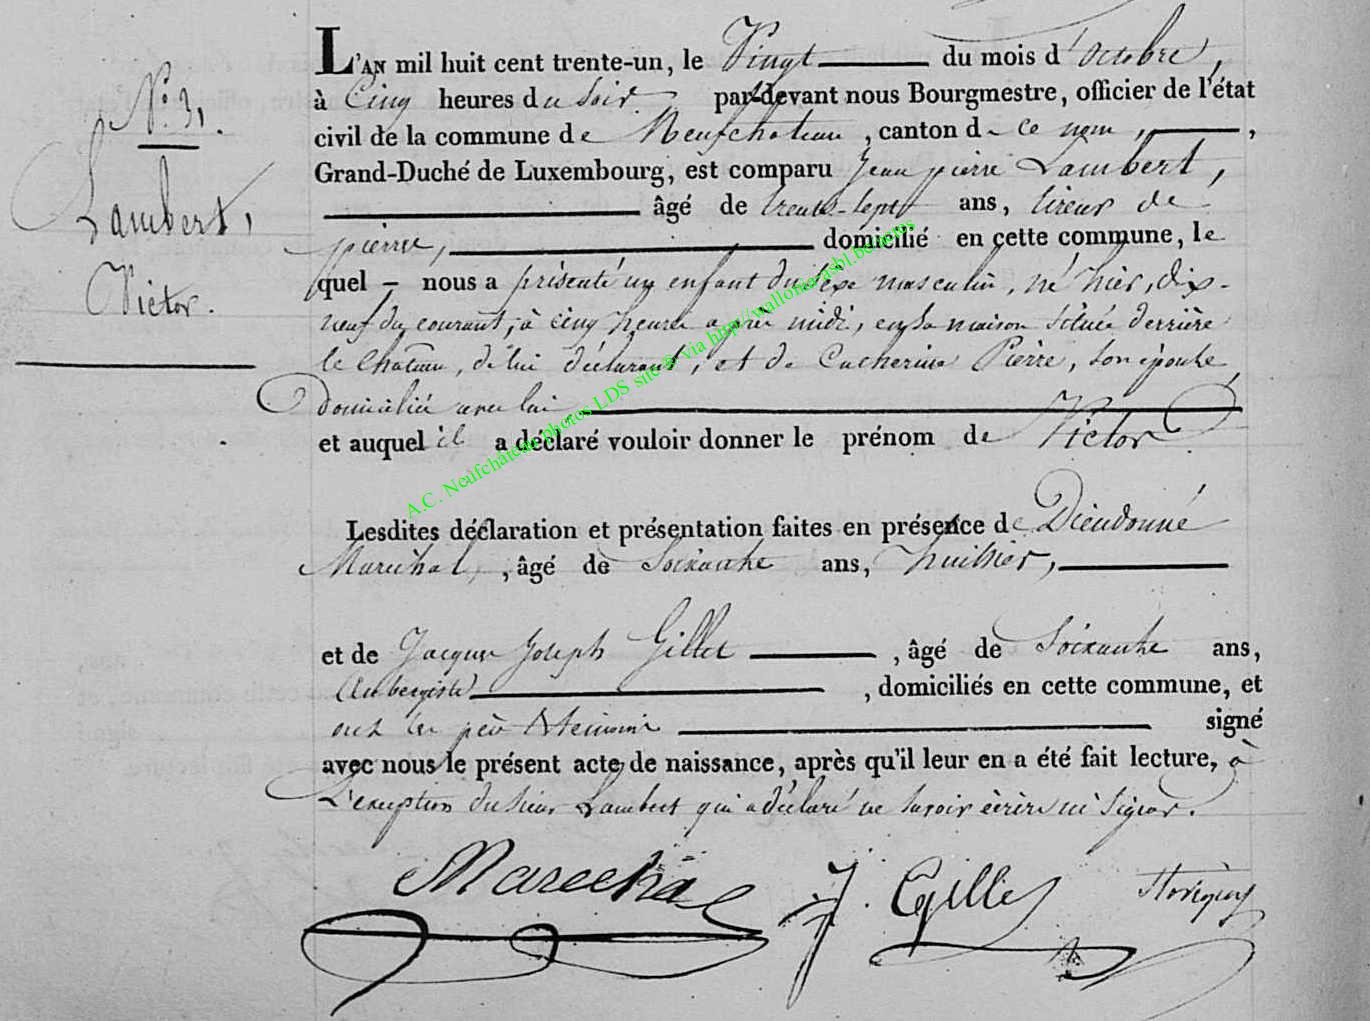 N.º 31.
Lambert,
Victor.
L'AN mil huit cent trente-un, le Vingt du mois d'octobre,
à Cinq heures du soir par-devant nous Bourgmestre, officier de l'état
civil de la commune de Neufchateau, canton de ce nom,
Grand-Duché de Luxembourg, est comparu Jean pierre Lambert,
âgé de trente-sept ans, tireur de
pierre, domicilié en cette commune, le
quel nous a présenté un enfant du sexe masculin, né hier, dix-
neuf du courant, à cinq heures après midi, en sa maison située derrière
le Chateau, de lui déclarant, et de Catherine Pierre, son épouse,
domiciliée avec lui
et auquel il a déclaré vouloir donner le prénom de Victor
Lesdites déclaration et présentation faites en présence de Dieudonné
Maréchal, âgé de Soixante ans, huissier,
et de Jacques Joseph Gillet, âgé de Soixante ans,
Aubergiste, domiciliés en cette commune, et
ont les père & témoins signé
avec nous le présent acte de naissance, après qu'il leur en a été fait lecture, à
L'exception du sieur Lambert qui a déclaré ne savoir écrire ni signer.
Marechal J. Gillet
A.C. Neufchâteau photos LDS site © via http://wallonia.asbl.be/actes